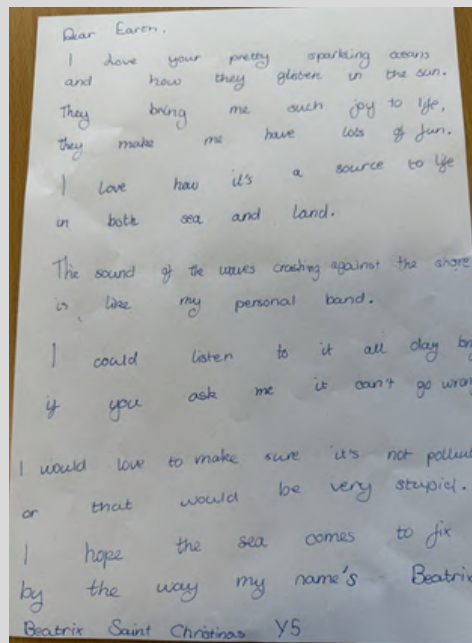 Dear Earth,
I love your pretty sparkling oceans
and how they glisten in the sun.
They bring me such joy to life,
they make me have lots of fun.
I love how it's a source to life
in both sea and land.
The sound of the waves crashing against the shore
is like my personal band.
I could listen to it all day
if you ask me it can't go
I would love to make sure it's not
or that would be very stupid.
I hope the sea comes to fix
by the way my name's Beatrix
Beatrix Saint Christinas Y5